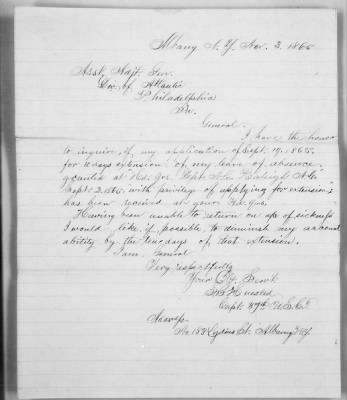 Albany N. Y. Nov. 3. 1865
Asst. Adjt. Gen.
Div. of Atlantic
Philadelphia
Pa.
General.
I have the honor
to inquire, if my application of Sept. 19. 1865.
for 10 days extension of my leave of absence
granted at Hd. Qrs. Dept. N. Ca. Raleigh N. Ca.
Sept. 2. 1865. with privilege of applying for extension;
has been received at your Hd. Qrs.
Having been unable to return on a/c of sickness
I would like if possible to diminish my
ability by the days of that extension.
I am. General
Very respectfully
Your Obt. Servt.
Capt. 37th U.S.C.T.
Address.
No. 152 Lydius St. Albany N.Y.